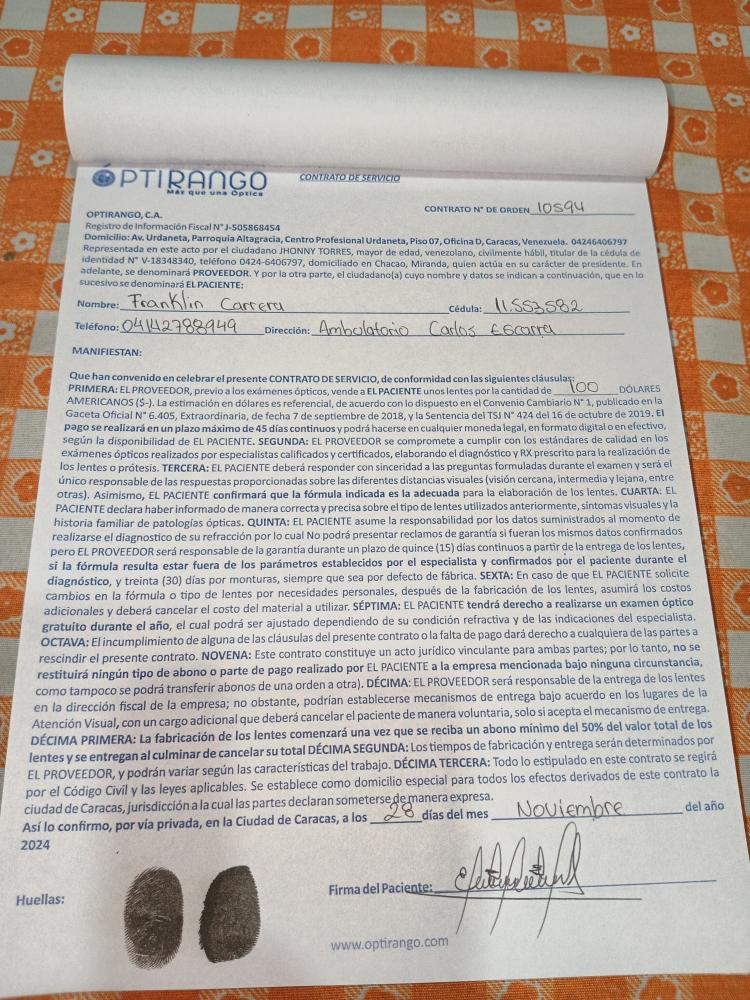 ÓPTIRANGO
Más que una Óptica
CONTRATO DE SERVICIO
CONTRATO N° DE ORDEN 10594
OPTIRANGO, C.A.
Registro de Información Fiscal N° J-505868454
Domicilio: Av. Urdaneta, Parroquia Altagracia, Centro Profesional Urdaneta, Piso 07, Oficina D, Caracas, Venezuela. 04246406797
Representada en este acto por el ciudadano JHONNY TORRES, mayor de edad, venezolano, civilmente hábil, titular de la cédula de
identidad N° V-18348340, teléfono 0424-6406797, domiciliado en Chacao, Miranda, quien actúa en su carácter de presidente. En
adelante, se denominará PROVEEDOR. Y por la otra parte, el ciudadano(a) cuyo nombre y datos se indican a continuación, que en lo
sucesivo se denominará EL PACIENTE:
Nombre: Franklin Carrera Cédula: 11.553582
Teléfono: 04142788949 Dirección: Ambulatorio Carlos Escarra
MANIFIESTAN:
Que han convenido en celebrar el presente CONTRATO DE SERVICIO, de conformidad con las siguientes cláusulas:
PRIMERA: EL PROVEEDOR, previo a los exámenes ópticos, vende a EL PACIENTE unos lentes por la cantidad de 100 DÓLARES
AMERICANOS ($-). La estimación en dólares es referencial, de acuerdo con lo dispuesto en el Convenio Cambiario N° 1, publicado en la
Gaceta Oficial N° 6.405, Extraordinaria, de fecha 7 de septiembre de 2018, y la Sentencia del TSJ N° 424 del 16 de octubre de 2019. El
pago se realizará en un plazo máximo de 45 días continuos y podrá hacerse en cualquier moneda legal, en formato digital o en efectivo,
según la disponibilidad de EL PACIENTE. SEGUNDA: EL PROVEEDOR se compromete a cumplir con los estándares de calidad en los
exámenes ópticos realizados por especialistas calificados y certificados, elaborando el diagnóstico y RX prescrito para la realización de
los lentes o prótesis. TERCERA: EL PACIENTE deberá responder con sinceridad a las preguntas formuladas durante el examen y será el
único responsable de las respuestas proporcionadas sobre las diferentes distancias visuales (visión cercana, intermedia y lejana, entre
otras). Asimismo, EL PACIENTE confirmará que la fórmula indicada es la adecuada para la elaboración de los lentes. CUARTA: EL
PACIENTE declara haber informado de manera correcta y precisa sobre el tipo de lentes utilizados anteriormente, síntomas visuales y la
historia familiar de patologías ópticas. QUINTA: EL PACIENTE asume la responsabilidad por los datos suministrados al momento de
realizarse el diagnostico de su refracción por lo cual No podrá presentar reclamos de garantía si fueran los mismos datos confirmados
pero EL PROVEEDOR será responsable de la garantía durante un plazo de quince (15) días continuos a partir de la entrega de los lentes,
si la fórmula resulta estar fuera de los parámetros establecidos por el especialista y confirmados por el paciente durante el
diagnóstico, y treinta (30) días por monturas, siempre que sea por defecto de fábrica. SEXTA: En caso de que EL PACIENTE solicite
cambios en la fórmula o tipo de lentes por necesidades personales, después de la fabricación de los lentes, asumirá los costos
adicionales y deberá cancelar el costo del material a utilizar. SÉPTIMA: EL PACIENTE tendrá derecho a realizarse un examen óptico
gratuito durante el año, el cual podrá ser ajustado dependiendo de su condición refractiva y de las indicaciones del especialista.
OCTAVA: El incumplimiento de alguna de las cláusulas del presente contrato o la falta de pago dará derecho a cualquiera de las partes a
rescindir el presente contrato. NOVENA: Este contrato constituye un acto jurídico vinculante para ambas partes; por lo tanto, no se
restituirá ningún tipo de abono o parte de pago realizado por EL PACIENTE a la empresa mencionada bajo ninguna circunstancia,
como tampoco se podrá transferir abonos de una orden a otra). DÉCIMA: EL PROVEEDOR será responsable de la entrega de los lentes
en la dirección fiscal de la empresa; no obstante, podrían establecerse mecanismos de entrega bajo acuerdo en los lugares de la
Atención Visual, con un cargo adicional que deberá cancelar el paciente de manera voluntaria, solo si acepta el mecanismo de entrega.
DÉCIMA PRIMERA: La fabricación de los lentes comenzará una vez que se reciba un abono mínimo del 50% del valor total de los
lentes y se entregan al culminar de cancelar su total DÉCIMA SEGUNDA: Los tiempos de fabricación y entrega serán determinados por
EL PROVEEDOR, y podrán variar según las características del trabajo. DÉCIMA TERCERA: Todo lo estipulado en este contrato se regirá
por el Código Civil y las leyes aplicables. Se establece como domicilio especial para todos los efectos derivados de este contrato la
ciudad de Caracas, jurisdicción a la cual las partes declaran someterse de manera expresa.
Así lo confirmo, por vía privada, en la Ciudad de Caracas, a los 28 días del mes Noviembre del año
2024
Huellas:
Firma del Paciente:
www.optirango.com